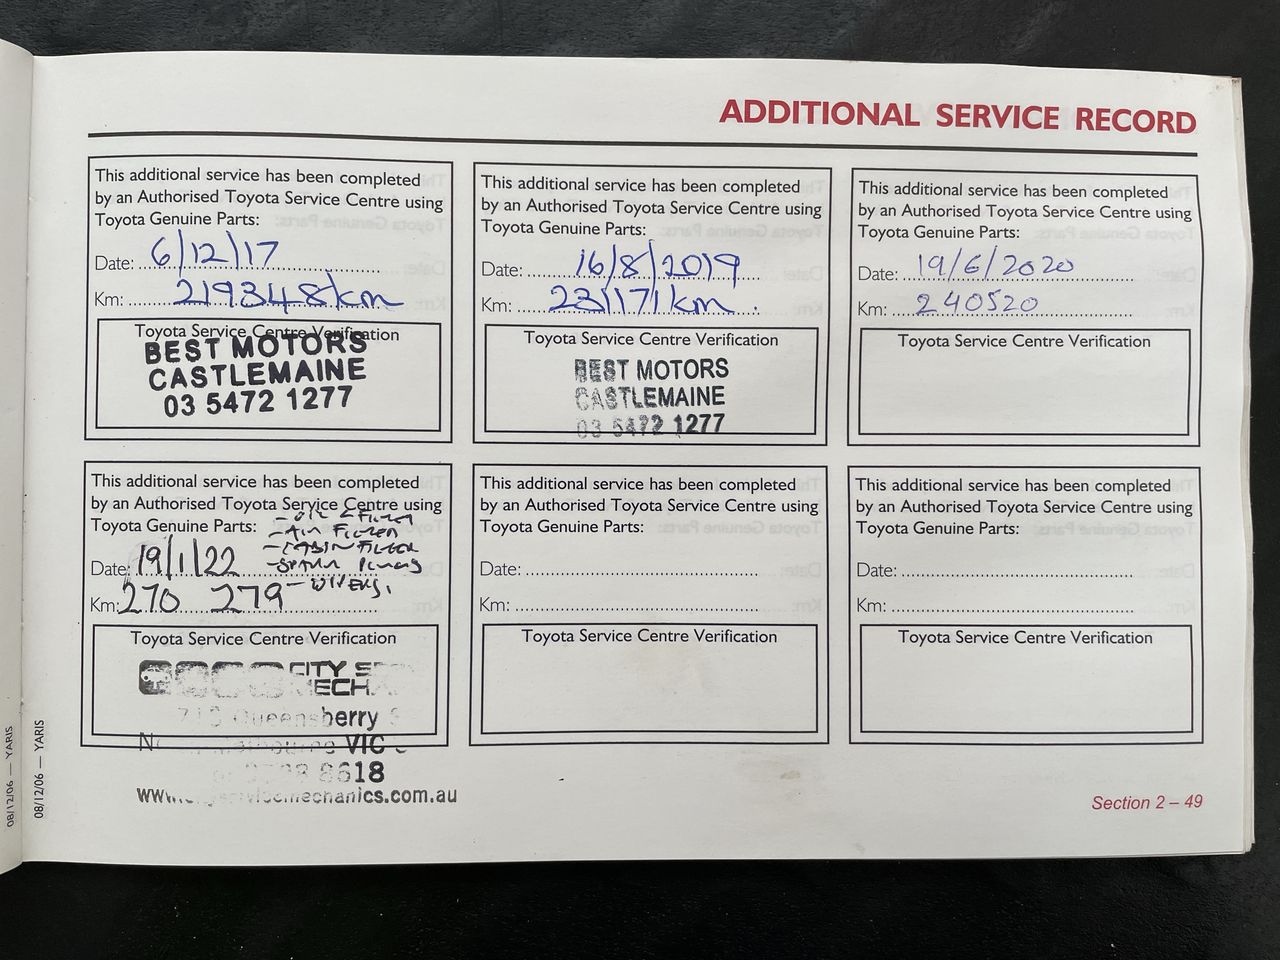 ADDITIONAL SERVICE RECORD
This additional service has been completed
by an Authorised Toyota Service Centre using
Toyota Genuine Parts:
Date: 6/12/17
Km: 219348km
Toyota Service Centre Verification
BEST MOTORS
CASTLEMAINE
03 5472 1277
This additional service has been completed
by an Authorised Toyota Service Centre using
Toyota Genuine Parts:
Date: 16/8/2019
Km: 231171km
Toyota Service Centre Verification
BEST MOTORS
CASTLEMAINE
03 5472 1277
This additional service has been completed
by an Authorised Toyota Service Centre using
Toyota Genuine Parts:
Date: 19/6/2020
Km: 240520
Toyota Service Centre Verification
This additional service has been completed
by an Authorised Toyota Service Centre using
Toyota Genuine Parts:
- OIL & FILTER
- AIR FILTER
- CABIN FILTER
- SPARK PLUGS
- WIPERS.
Date: 19/1/22
Km: 270 279
Toyota Service Centre Verification
CITY
Queensberry
VIC
8618
This additional service has been completed
by an Authorised Toyota Service Centre using
Toyota Genuine Parts:
Date:
Km:
Toyota Service Centre Verification
This additional service has been completed
by an Authorised Toyota Service Centre using
Toyota Genuine Parts:
Date:
Km:
Toyota Service Centre Verification
Section 2 – 49
08/12/06 — YARIS
08/12/06 — YARIS